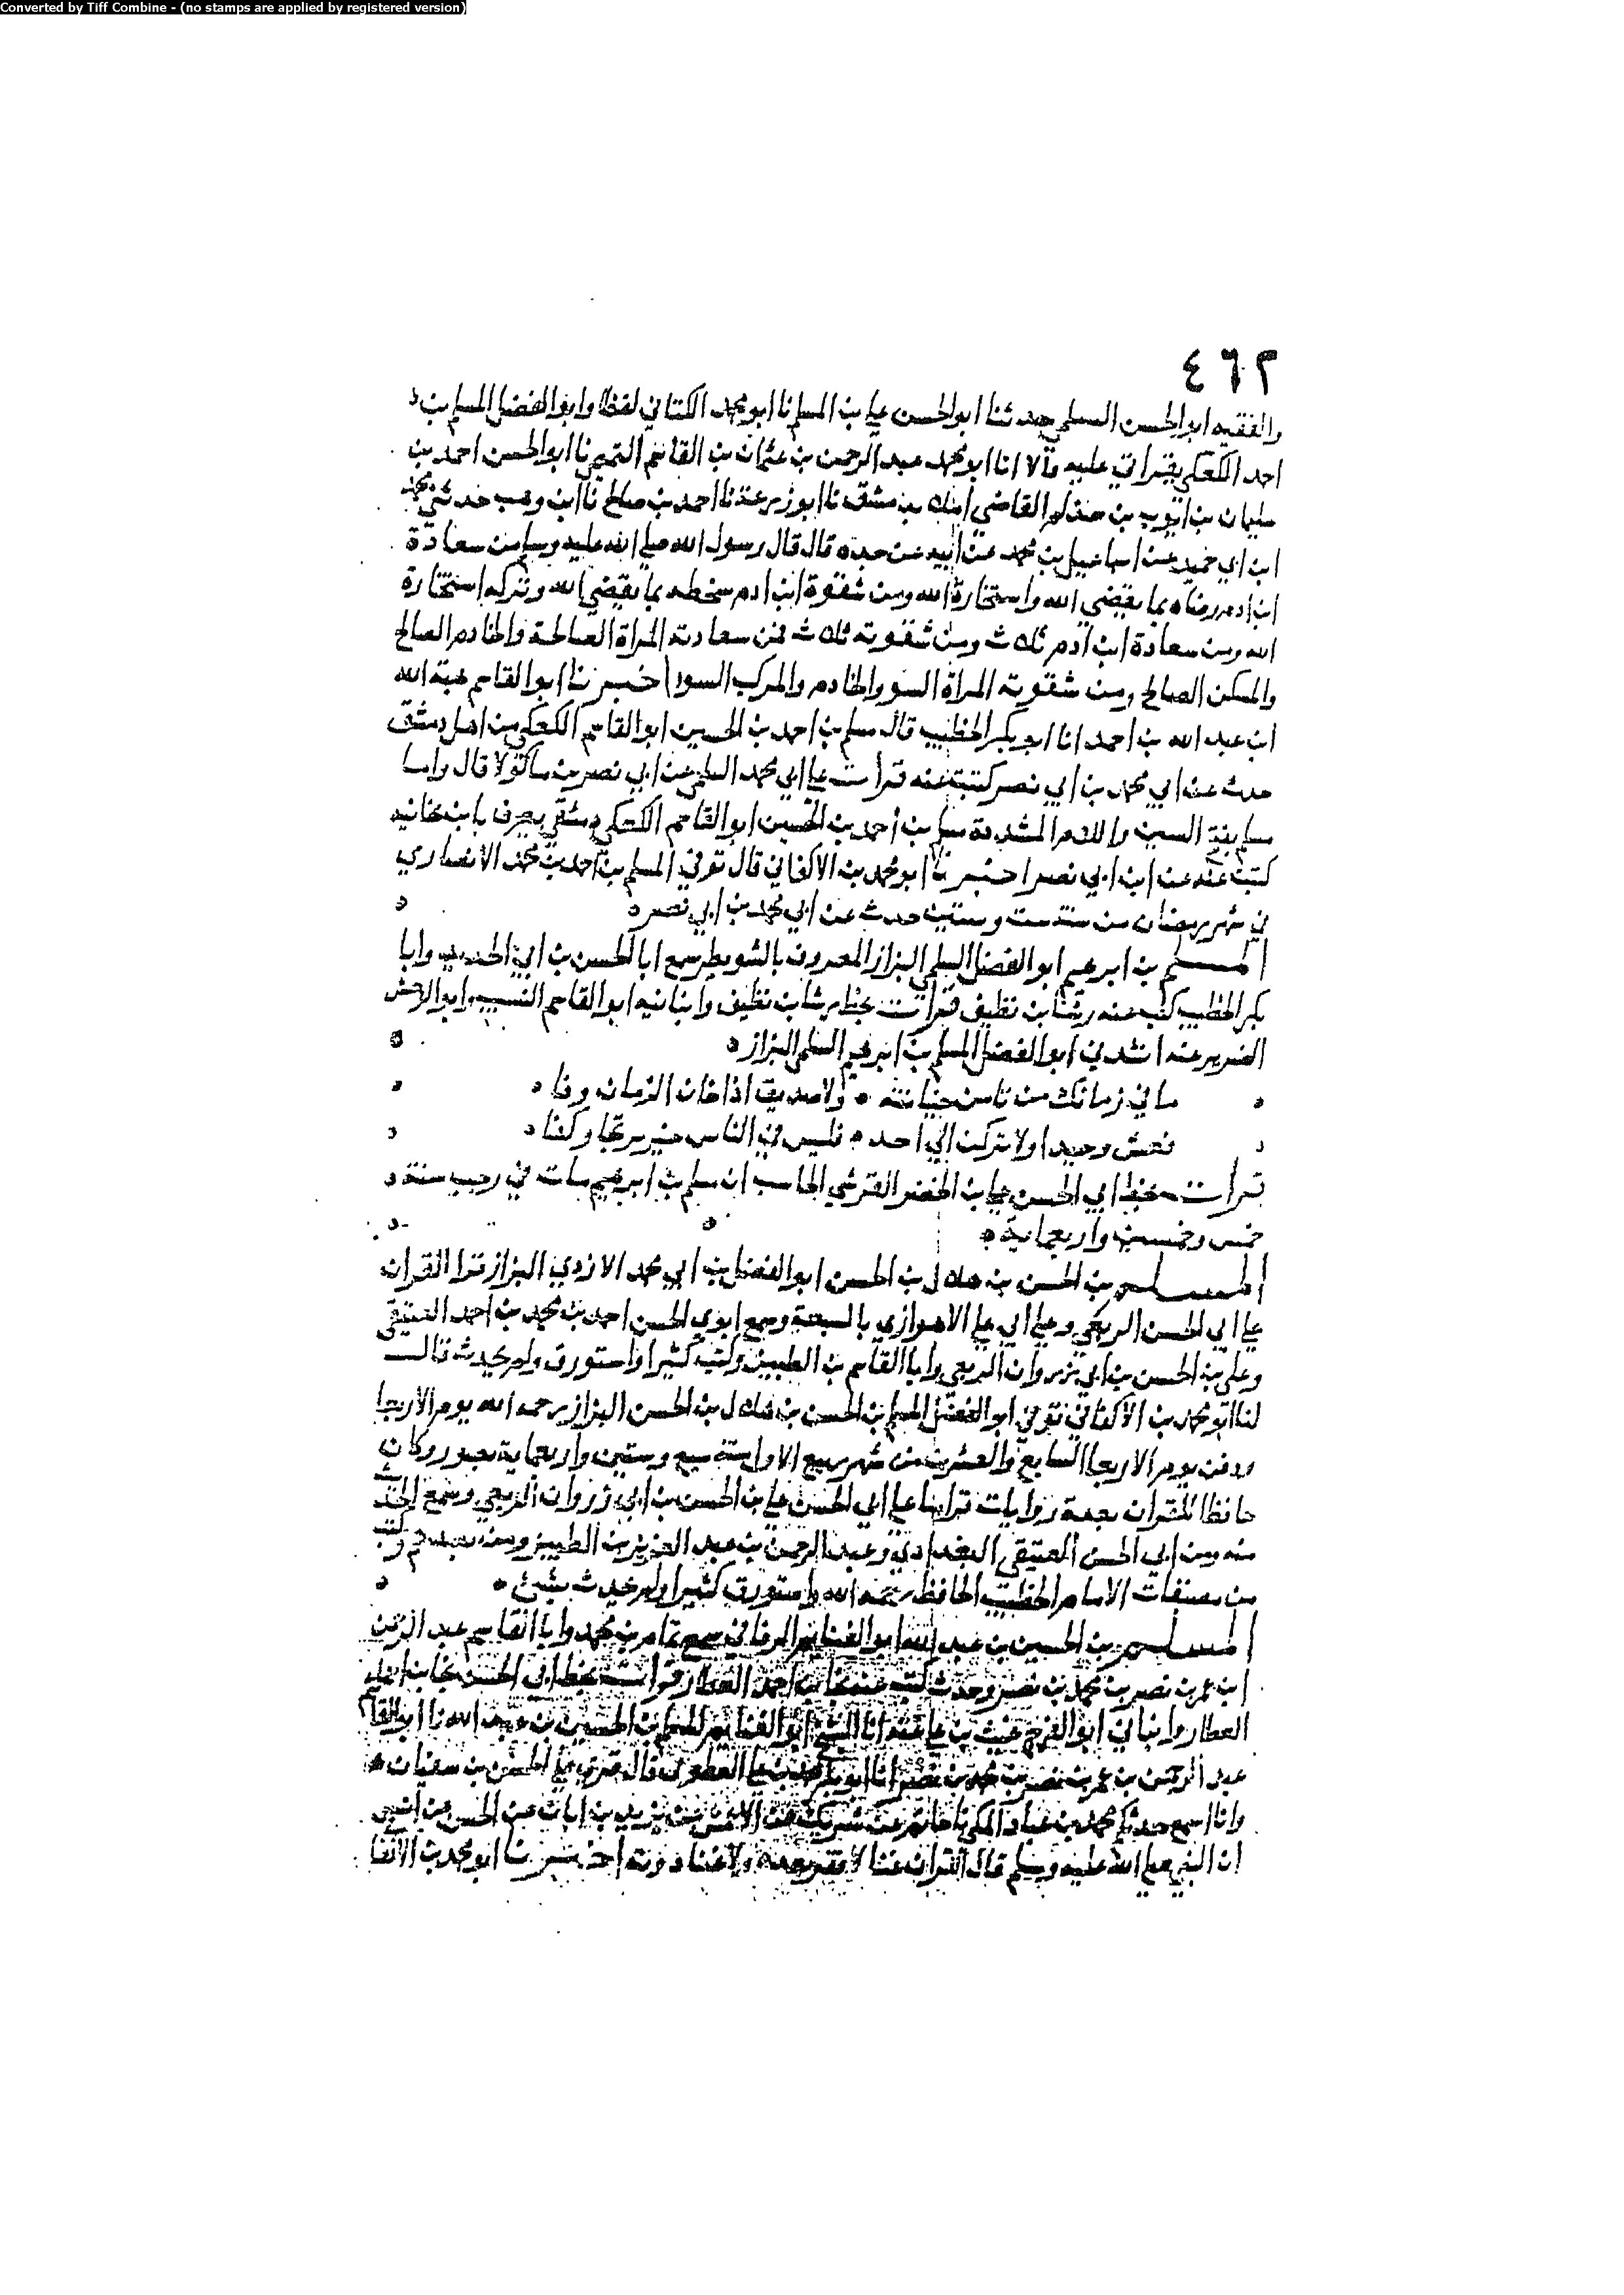 Converted by Tiff Combine - (no stamps are applied by registered version)
٤٦٢
والفقيه ابو الحسن السلمي حدثنا ابو الحسن علي بن المسلم نا ابو محمد الكتاني لفظا وابو الفضل المسلم بن
احمد الكعكي بقراتي عليه قالا انا ابو محمد عبد الرحمن بن عثمان بن القاسم التميمي نا ابو الحسن احمد بن
سليمان بن ايوب بن حذلم القاضي بدمشق نا ابو زرعة نا احمد بن صالح نا ابن وهب حدثني محمد
ابن ابي حميد عن اسماعيل بن محمد عن ابيه عن جده قال قال رسول الله صلى الله عليه وسلم من سعادة
ابن ادم رضاه بما يقضي الله واستخارة الله ومن شقوة ابن ادم سخطه بما يقضي الله وتركه استخارة
الله ومن سعادة ابن ادم ثلاث ومن شقوته ثلاث فمن سعادته المراة الصالحة والخادم الصالح
والمسكن الصالح ومن شقوته المراة السو والخادم والمركب السوا اخبرنا ابو القاسم هبة الله
ابن عبد الله بن احمد انا ابو بكر الخطيب قال مسلم بن احمد بن الحسين ابو القاسم الكعكي من اهل دمشق
حدث عن ابي محمد بن ابي نصر كتبت عنه قرأت على ابي محمد السلمي عن ابي نصر بن ماكولا قال واما
مسلم بفتح السين واللام المشددة مسلم بن احمد بن الحسين ابو القاسم الكعكي دمشقي يعرف بابن
كتبت عنه عن ابن ابي نصر اخبرنا ابو محمد بن الاكفاني قال توفي المسلم بن احمد بن محمد الانصاري
في شهر رمضان من سنة ست وستين حدث عن ابي محمد بن ابي نصر
المسلم بن ابرهيم ابو الفضل السلمي البزاز المعروف بالشويطر سمع ابا الحسن بن ابي الحديد وابا
بكر الخطيب كتب عنه رشا بن نظيف قرأت بخط رشا بن نظيف وانبانيه ابو القاسم النسيب وابو الوحش
الضرير عنه انشدني ابو الفضل المسلم بن ابرهيم السلمي البزاز
ما في زمانك من تامن خيانته ولا صديق اذا خان الزمان وفا
فعش وحيدا ولا تركن الي احد فليس في الناس من يرتجا وكفا
قرأت بخط ابي الحسن علي بن الخضر القرشي الحاسب ان مسلم بن ابرهيم مات في رجب سنة
خمس وخمسين واربعماية
المسلم بن الحسن بن هلال بن الحسن ابو الفضل بن ابي محمد الازدي البزاز قرا القران
على ابي الحسن الربعي وعلى ابي علي الاهوازي بالسبعة وسمع ابوي الحسن احمد بن محمد بن احمد العتيقي
وعلي بن الحسن بن ابي زروان الربعي وابا القاسم بن الطبيز وكتب كثيرا واستورق ولم يحدث قال
لنا ابو محمد بن الاكفاني توفي ابو الفضل المسلم بن الحسن بن هلال بن الحسن البزاز رحمه الله يوم الاربعا
ودفن يوم الاربعا السابع والعشرين من شهر ربيع الاول سنة سبع وستين واربعماية بصور وكان
حافظا للقران بعدة روايات قراها على ابي الحسن علي بن الحسن بن ابي زروان الربعي وسمع الحديث
منه ومن ابي الحسن العتيقي البغدادي وعبد الرحمن بن عبد العزيز بن الطبيز ومن بعدهم وكتب
من مصنفات الامام الخطيب الحافظ رحمه الله واستورق كثيرا ولم يحدث بشئ
المسلم بن الحسين بن عبد الله ابو الغنايم سمع تمام بن محمد وابا القاسم عبد الرحمن
ابن عمر بن نصر بن محمد بن نصر وحدث كتب عنه نجا بن احمد العطار قرأت بخط ابي الحسن نجا بن احمد
العطار وانباني ابو الفرج غيث بن علي عنه انا الشيخ ابو الغنايم المسلم بن الحسين بن عبد الله نا ابو القاسم
عبد الرحمن بن عمر بن نصر بن محمد بن نصر انا ابو بكر قال قري على الحسن بن سفيان
وانا اسمع حدثكم محمد بن عباد المكي نا حاتم عن شريك عن الاعمش عن يزيد بن ابان عن الحسن عن انس
ان النبي صلى الله عليه وسلم قال القران غنا لا فقر بعده ولا غنا دونه اخبرنا ابو محمد بن الاكفا